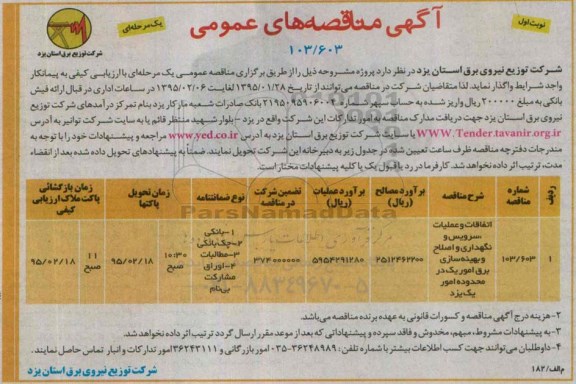 آگهی مناقصه‌های عمومی
نوبت اول
یک مرحله‌ای
۱۰۳/۶۰۳
شرکت توزیع نیروی برق استان یزد
شرکت توزیع نیروی برق استان یزد در نظر دارد پروژه مشروحه ذیل را از طریق برگزاری مناقصه عمومی یک مرحله‌ای با ارزیابی کیفی به پیمانکار
واجد شرایط واگذار نماید. لذا متقاضیان شرکت در مناقصه می‌توانند از تاریخ ۱۳۹۵/۰۱/۲۸ لغایت ۱۳۹۵/۰۲/۰۶ در ساعات اداری در قبال ارائه فیش
بانکی به مبلغ ۲۰۰۰۰۰ ریال واریز شده به حساب سپهر شماره ۲۱۹۵۰۹۵۹۰۶۰۰۴ بانک صادرات شعبه مازکار یزد بنام تمرکز درآمدهای شرکت توزیع
نیروی برق استان یزد جهت دریافت مدارک مناقصه به امور تدارکات این شرکت واقع در یزد – بلوار شهید منتظر قائم یا به سایت شرکت توانیر به آدرس
www.Tender.tavanir.org.ir یا سایت شرکت توزیع برق استان یزد به آدرس www.yed.co.ir مراجعه و پیشنهادات خود را با توجه به
مندرجات دفترچه مناقصه ظرف ساعت تعیین شده در جدول زیر به دبیرخانه این شرکت تحویل نمایند. ضمناً به پیشنهادهای تحویل داده شده بعد از انقضاء
مدت، ترتیب اثر داده نخواهد شد. کارفرما در رد یا قبول یک یا کلیه پیشنهادات مختار است.
ردیف
شماره مناقصه
شرح مناقصه
برآورد مصالح (ریال)
برآورد عملیات (ریال)
تضمین شرکت در مناقصه
نوع ضمانتنامه
زمان تحویل پاکتها
زمان بازگشائی پاکت ملاک ارزیابی کیفی
۱
۱۰۳/۶۰۳
اتفاقات و عملیات
،سرویس و
نگهداری و اصلاح
و بهینه‌سازی
برق امور یک در
محدوده امور
یک یزد
۲۵۱۲۴۶۲۲۰۰
۵۹۵۴۴۹۱۲۸۰
۳۷۴۰۰۰۰۰۰
۱-بانکی
۲-چک بانکی
۳-مطالبات
۴-اوراق
مشارکت
بی‌نام
۱۰:۳۰ صبح
۹۵/۰۲/۱۸
۱۱ صبح
۹۵/۰۲/۱۸
ParsNamadData
۲-هزینه درج آگهی مناقصه و کسورات قانونی به عهده برنده مناقصه می‌باشد.
۳- به پیشنهادات مشروط، مبهم، مخدوش و فاقد سپرده و پیشنهاداتی که بعد از موعد مقرر ارسال گردد ترتیب اثر داده نخواهد شد.
۴- داوطلبان می‌توانند جهت کسب اطلاعات بیشتر با شماره تلفن: ۳۶۲۴۸۹۸۹-۰۳۵ امور بازرگانی و ۳۶۲۴۳۱۱۱ امور تدارکات و انبار تماس حاصل نمایند.
م الف/ ۱۸۲
شرکت توزیع نیروی برق استان یزد